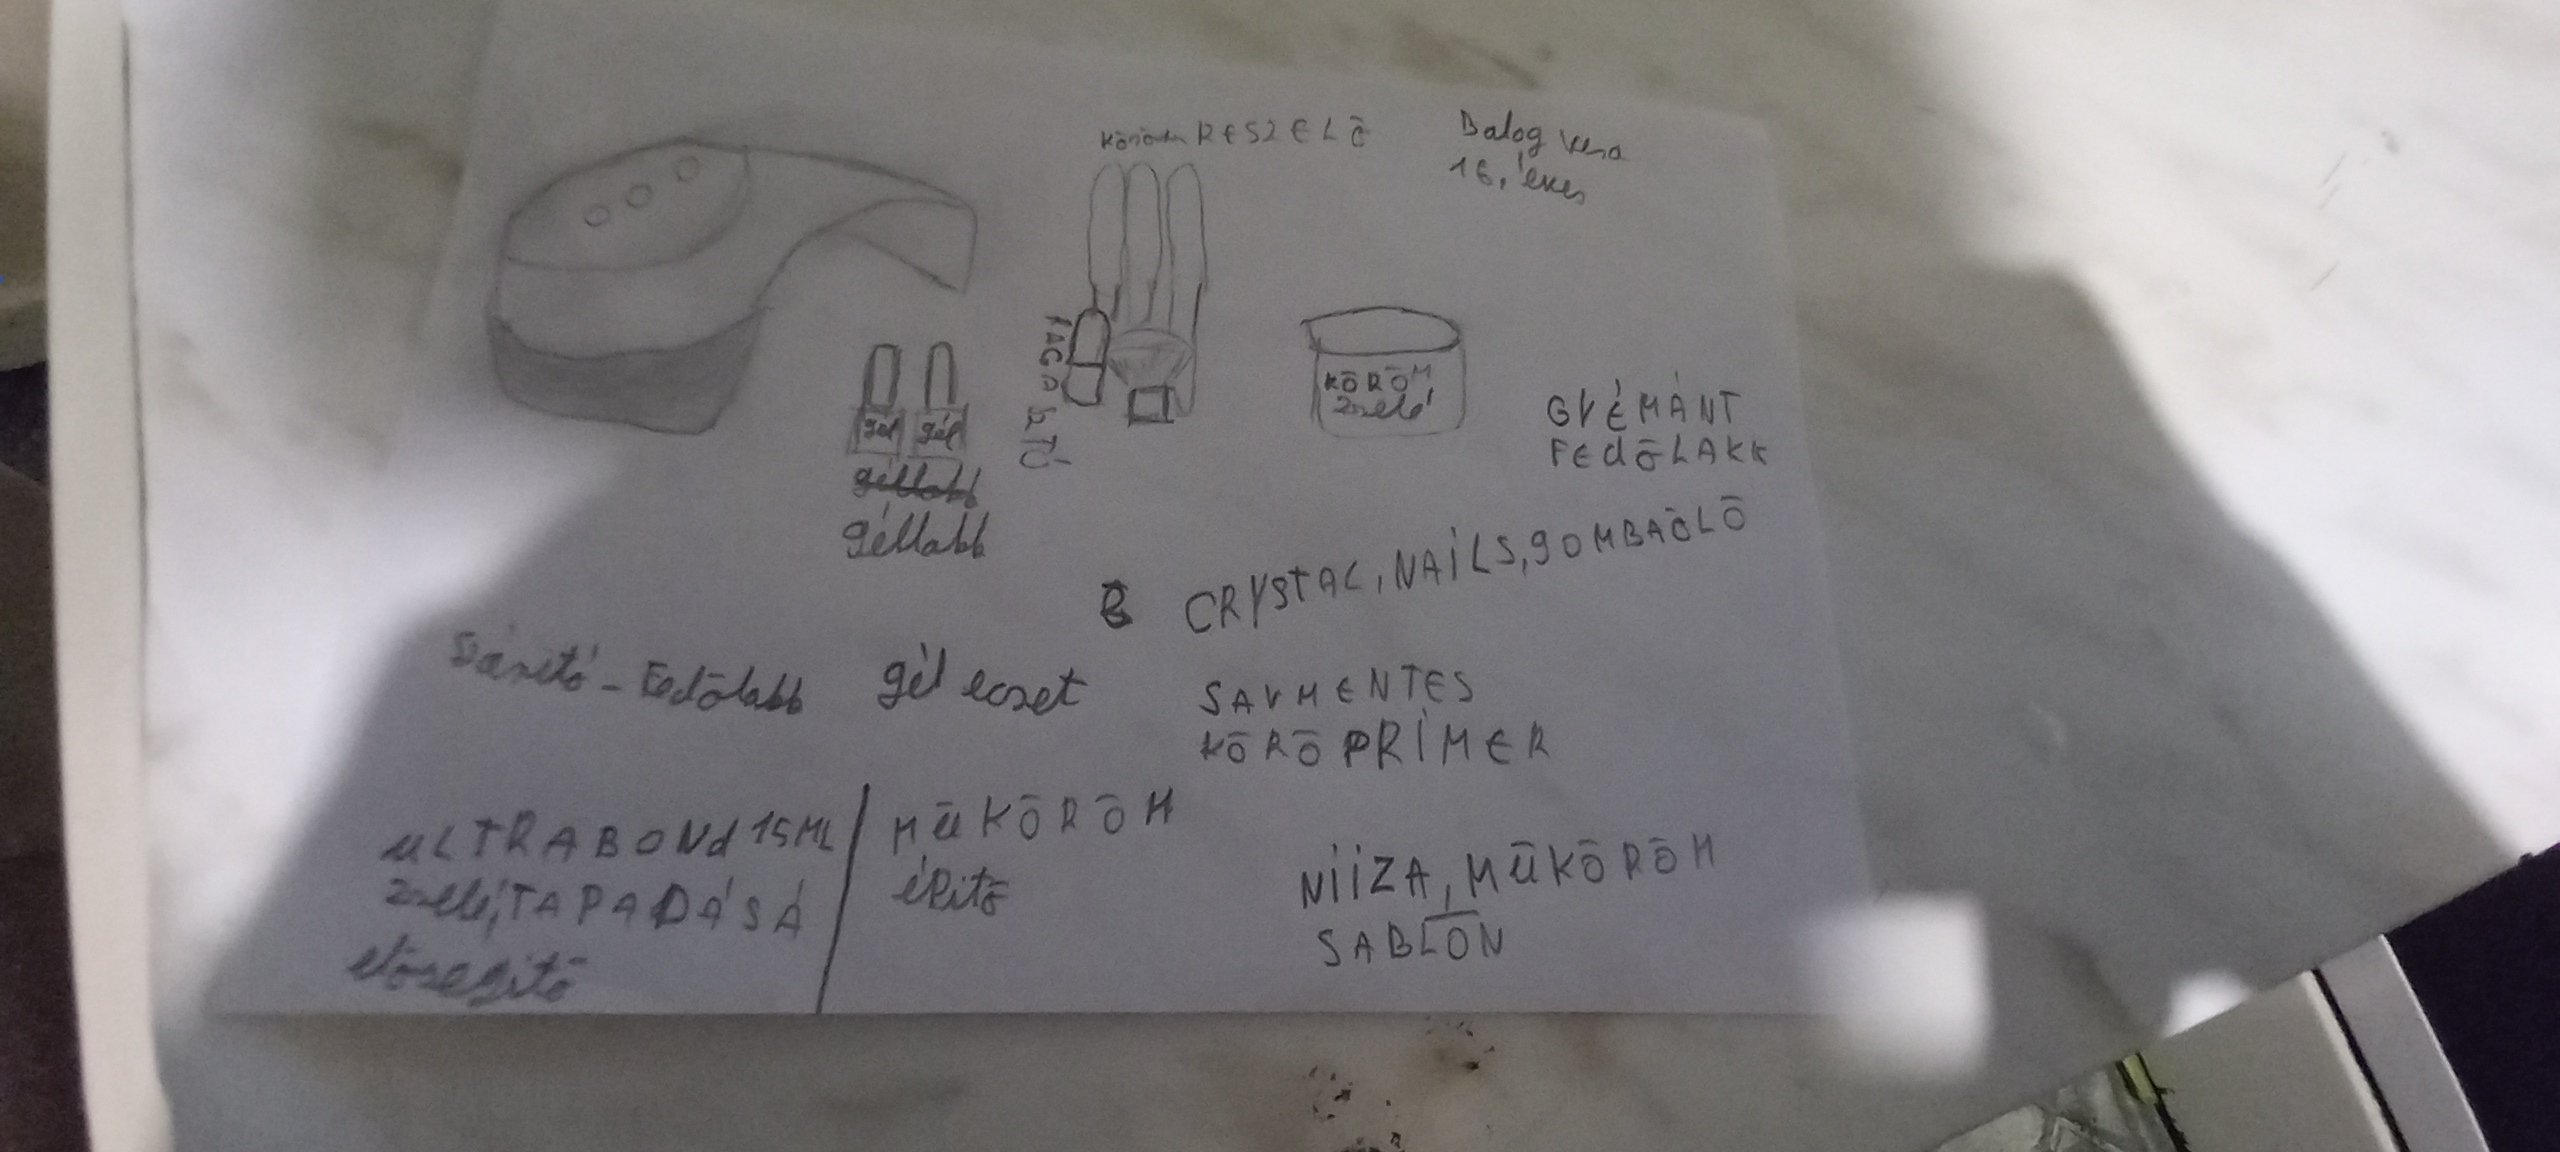 köröm RESZELŐ
Balog
16. éves
KÖRÖM
Zselé
gél gél
géllakk
géllakk
GYÉMÁNT
FEdŐLAKK
CRYSTAL, NAiLS, gOMBAÖLŐ
- Fedőlakk
gél ecset
SAVMENTES
KÖRÖPRiMER
ULTRABONd 15ML
Zselé, TAPADÁSÁ
elősegitő
MŰKÖRÖM
éPitő
NiiZA, MŰKÖRÖM
SABLON